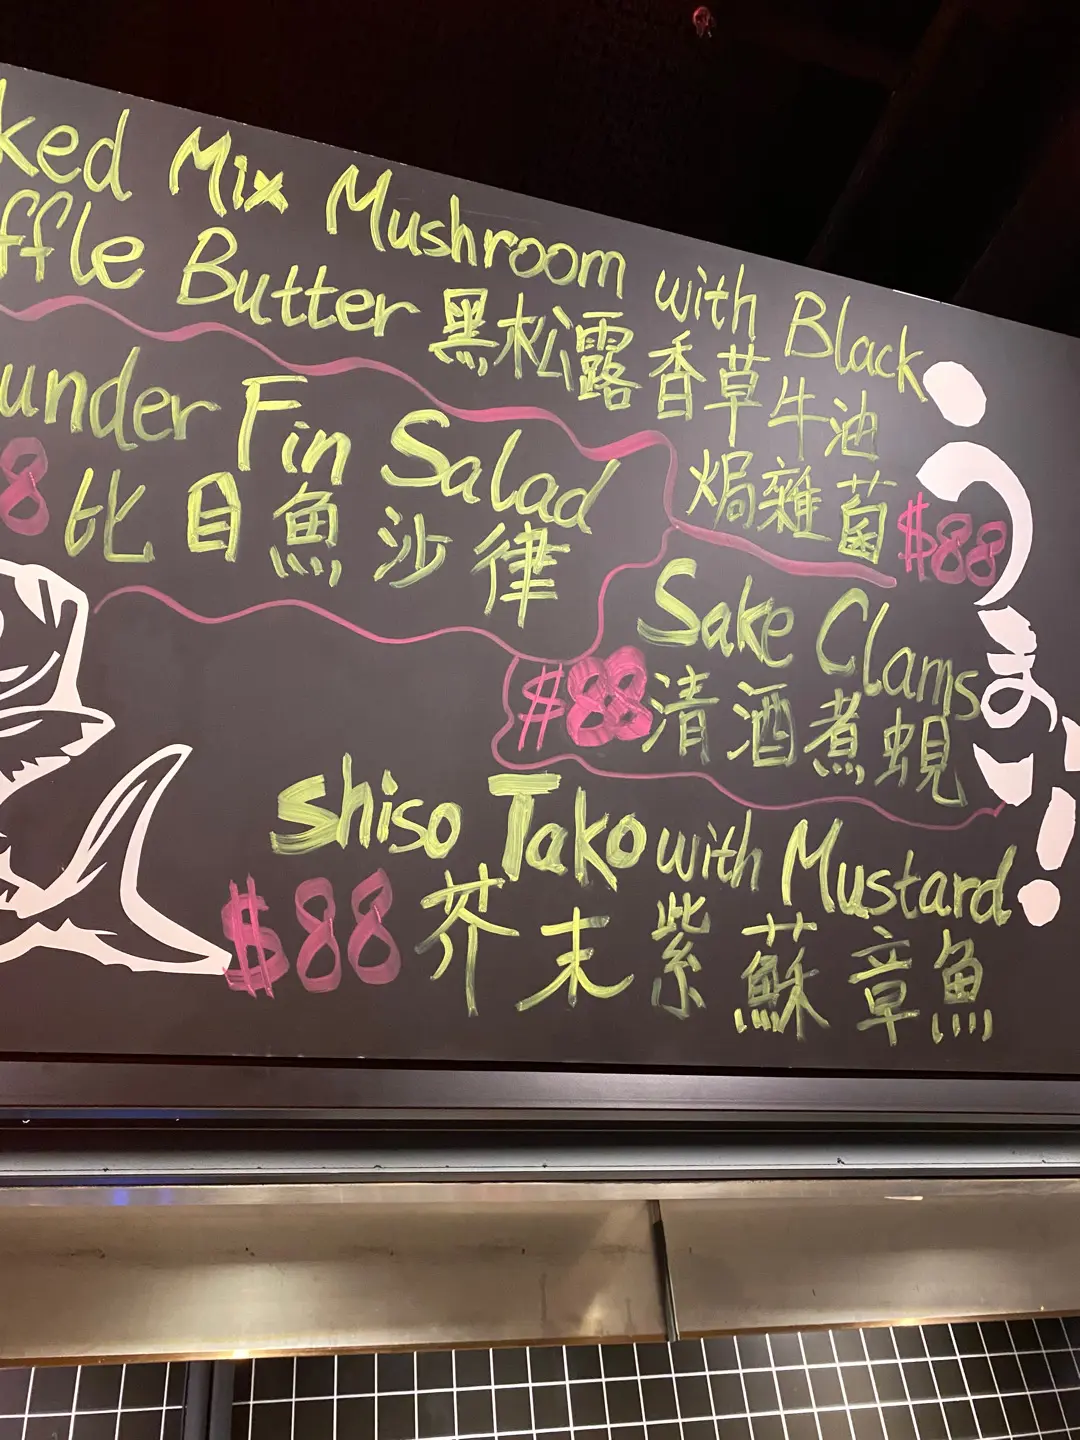 ked Mix Mushroom with Black
ffle Butter 黑松露香草牛油
焗雜菌 $88
under Fin Salad
8 比目魚沙律
Sake Clams
$88 清酒煮蜆
Shiso Tako with Mustard
$88 芥末紫蘇章魚
うまい!